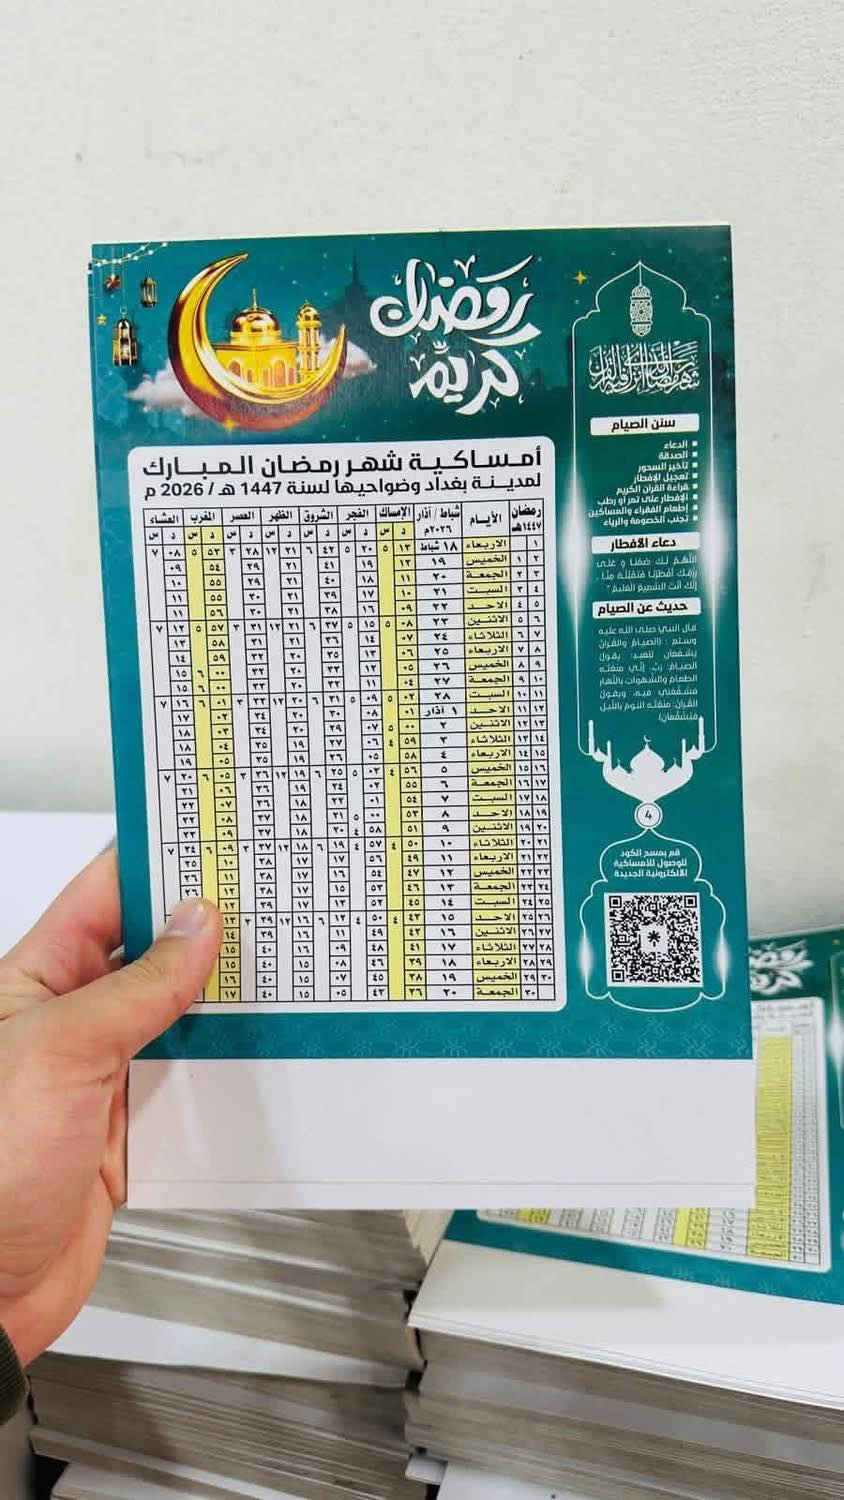 رمضان
كريم
أمساكية شهر رمضان المبارك
لمدينة بغداد وضواحيها لسنة 1447 هـ / 2026 م
رمضان ١٤٤٧هـ الأيـام شباط / أذار ٢٠٢٦م الإمساك الفجر الشروق الظهر العصر المغرب العشاء
د س د س د س د س د س د س د س
١ الاربعاء ١٨ شباط ١٣ ٥ ٢٠ ٥ ٤٢ ٦ ٢١ ١٢ ٢٨ ٣ ٥٣ ٥ ٠٨ ٧
١ ٢ الخميس ١٩ ١٢ ١٩ ٤١ ٢١ ٢٩ ٥٤ ٠٩
٢ ٣ الجمعة ٢٠ ١١ ١٨ ٤٠ ٢١ ٢٩ ٥٥ ١٠
٣ ٤ السبت ٢١ ١٠ ١٧ ٣٩ ٢١ ٣٠ ٥٥ ١١
٤ ٥ الاحد ٢٢ ٠٩ ١٦ ٣٨ ٢١ ٣١ ٥٦ ١١
٥ ٦ الاثنين ٢٣ ٠٨ ٥ ١٥ ٥ ٣٧ ٦ ٢١ ١٢ ٣١ ٣ ٥٧ ٥ ١٢ ٧
٦ ٧ الثلاثاء ٢٤ ٠٧ ١٤ ٣٦ ٢٠ ٣٢ ٥٨ ١٣
٧ ٨ الاربعاء ٢٥ ٠٦ ١٣ ٢٠ ٣٢ ٥٩ ١٤
٨ ٩ الخميس ٢٦ ٠٥ ١٢ ٣٣ ٢٠ ٣٣ ٠٠ ٦ ١٥
٩ ١٠ الجمعة ٢٧ ٠٤ ١١ ٣٢ ٢٠ ٣٣ ٠٠ ١٥
١٠ ١١ السبت ٢٨ ٠٢ ٥ ٠٩ ٥ ٣١ ٦ ٢٠ ١٢ ٣٣ ٣ ٠١ ٦ ١٦ ٧
١١ ١٢ الاحد ١ أذار ٠١ ٠٨ ٣٠ ٢٠ ٣٤ ٠٢ ١٧
١٢ ١٣ الاثنين ٢ ٠٠ ٥ ٠٧
١٣ ١٤ الثلاثاء ٣ ٥٩ ٤ ٠٦ ٢٧ ١٩ ٣٥ ٠٤ ١٩
١٤ ١٥ الاربعاء ٤ ٥٨ ٠٥ ٢٦ ١٩ ٣٥ ٠٥ ١٩
١٥ ١٦ الخميس ٥ ٥٦ ٤ ٠٣ ٥ ٢٥ ٦ ١٩ ١٢ ٣٦ ٣ ٠٥ ٦ ٢٠ ٧
١٦ ١٧ الجمعة ٦ ٥٥ ٠٢ ٢٤ ١٩ ٣٦ ٠٦ ٢١
١٧ ١٨ السبت ٧ ٥٤ ٠١ ٢٢ ١٨ ٣٦ ٠٧ ٢٢
١٨ ١٩ الاحد ٨ ٥٣ ٠٠ ٥ ٢١ ١٨ ٣٧ ٠٨ ٢٣
١٩ ٢٠ الاثنين ٩ ٥١ ٥٨ ٤ ٢٠ ١٨ ٣٧ ٠٨ ٢٣
٢٠ ٢١ الثلاثاء ١٠ ٥٠ ٤ ٥٧ ٤ ١٩ ٦ ١٨ ١٢ ٣٧ ٣ ٠٩ ٦ ٢٤ ٧
٢١ ٢٢ الاربعاء ١١ ٤٩ ٥٦ ١٧ ١٧ ٣٨ ١٠ ٢٥
٢٢ ٢٣ الخميس ١٢ ٤٧ ٥٤ ١٦ ١٧ ٣٨ ١١ ٢٦
٢٣ ٢٤ الجمعة ١٣ ٤٦ ٥٣ ١٥ ١٧ ٣٨ ١٢ ٢٦
٢٤ ٢٥ السبت ١٤ ٤٥ ٥٢ ١٧ ٣٩ ١٢
٢٥ ٢٦ الاحد ١٥ ٤٣ ٤ ٥٠ ٤ ١٢ ٦ ١٦ ١٢ ٣٩ ٣ ١٣
٢٦ ٢٧ الاثنين ١٦ ٤٢ ٤٩ ١١ ١٦ ٣٩ ١٤
٢٧ ٢٨ الثلاثاء ١٧ ٤١ ٤٨ ٠٩ ١٦ ٣٩ ١٥
٢٨ ٢٩ الاربعاء ١٨ ٣٩ ٤٦ ٠٨ ١٥ ٤٠ ١٥
٢٩ ٣٠ الخميس ١٩ ٣٨ ٤٥ ٠٧ ١٥ ٤٠ ١٦
٣٠ الجمعة ٢٠ ٣٦ ٤٣ ٠٥ ١٥ ٤٠ ١٧
سنن الصيام
الدعاء
الصدقة
تأخير السحور
تعجيل الإفطار
قراءة القران الكريم
الإفطار على تمر أو رطب
إطعام الفقراء والمساكين
تجنب الخصومة والرياء
دعاء الأفطار
اللهُم لَك صُمنا و على
رزقك أفطَرنا فتقبَّله منا ،
إنك أنت السَّميعُ العَليمُ "
حديث عن الصيام
قال النبي صلى الله عليه
وسلم : (الصيامُ والقرآنُ
يشفعان للعبد: يقولُ
الصيامُ: ربِّ، إنِّي منعتُه
الطعامَ والشهواتِ بالنَّهارِ
فشفِّعْني فيه، ويقولُ
القرآنُ: منعتُه النومَ بالليلِ
فيشفَّعانِ)
4
قم بمسح الكود
للوصول للأمساكية
الألكترونية الجديدة